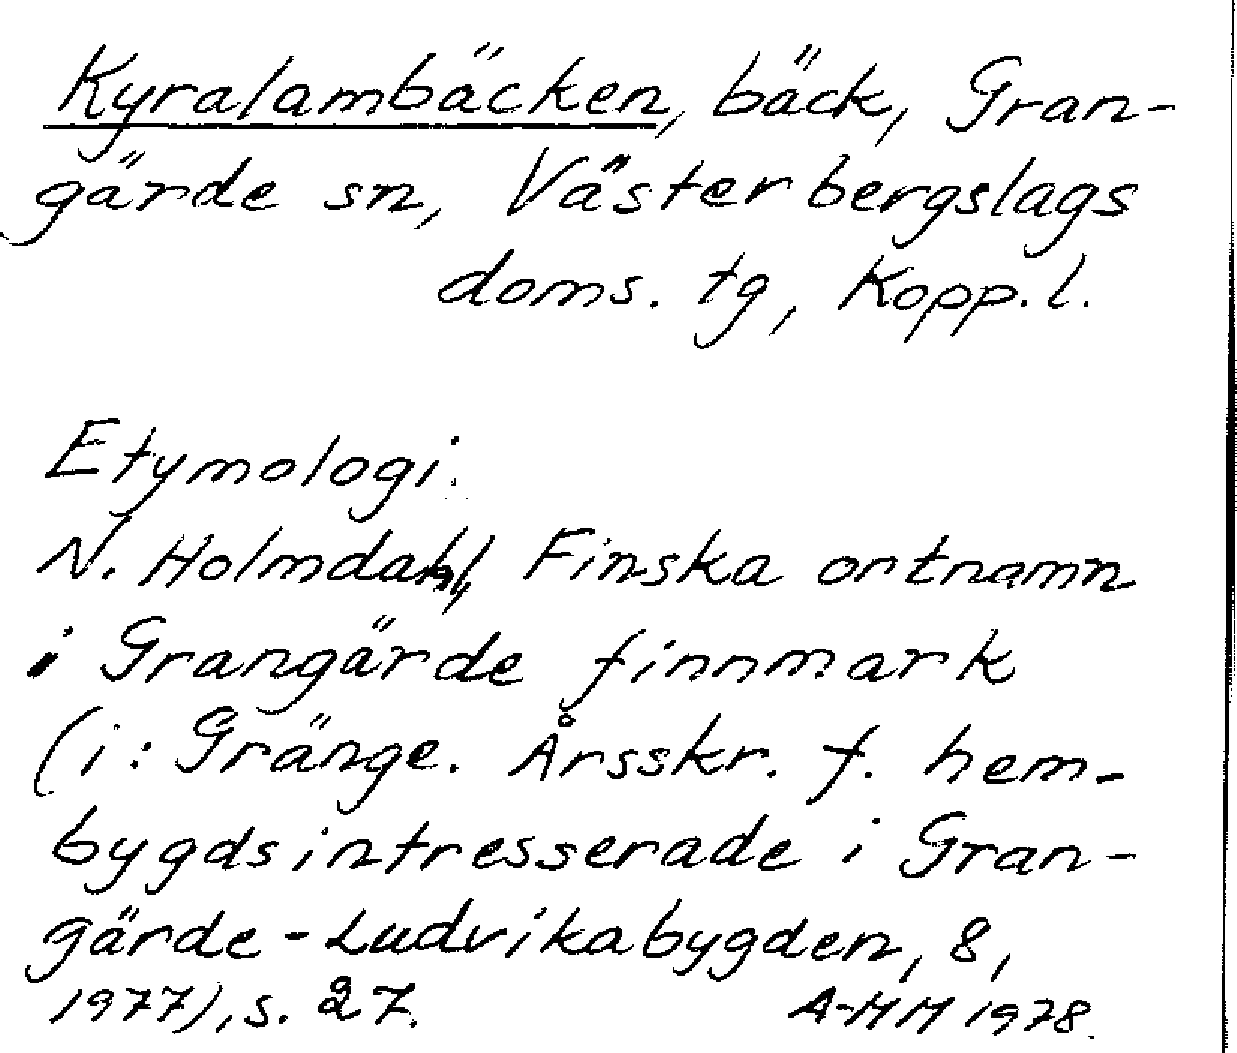 Kyralambäcken, bäck, Gran-
gärde sn, Västerbergslags
doms. tg, Kopp. l.
Etymologi.
N. Holmdahl, Finska ortnamn
i Grangärde finnmark
(i: Gränge. Årsskr. f. hem-
bygdsintresserade i Gran-
gärde-Ludvikabygden, 8,
1977), s. 27. A-MM 1978.